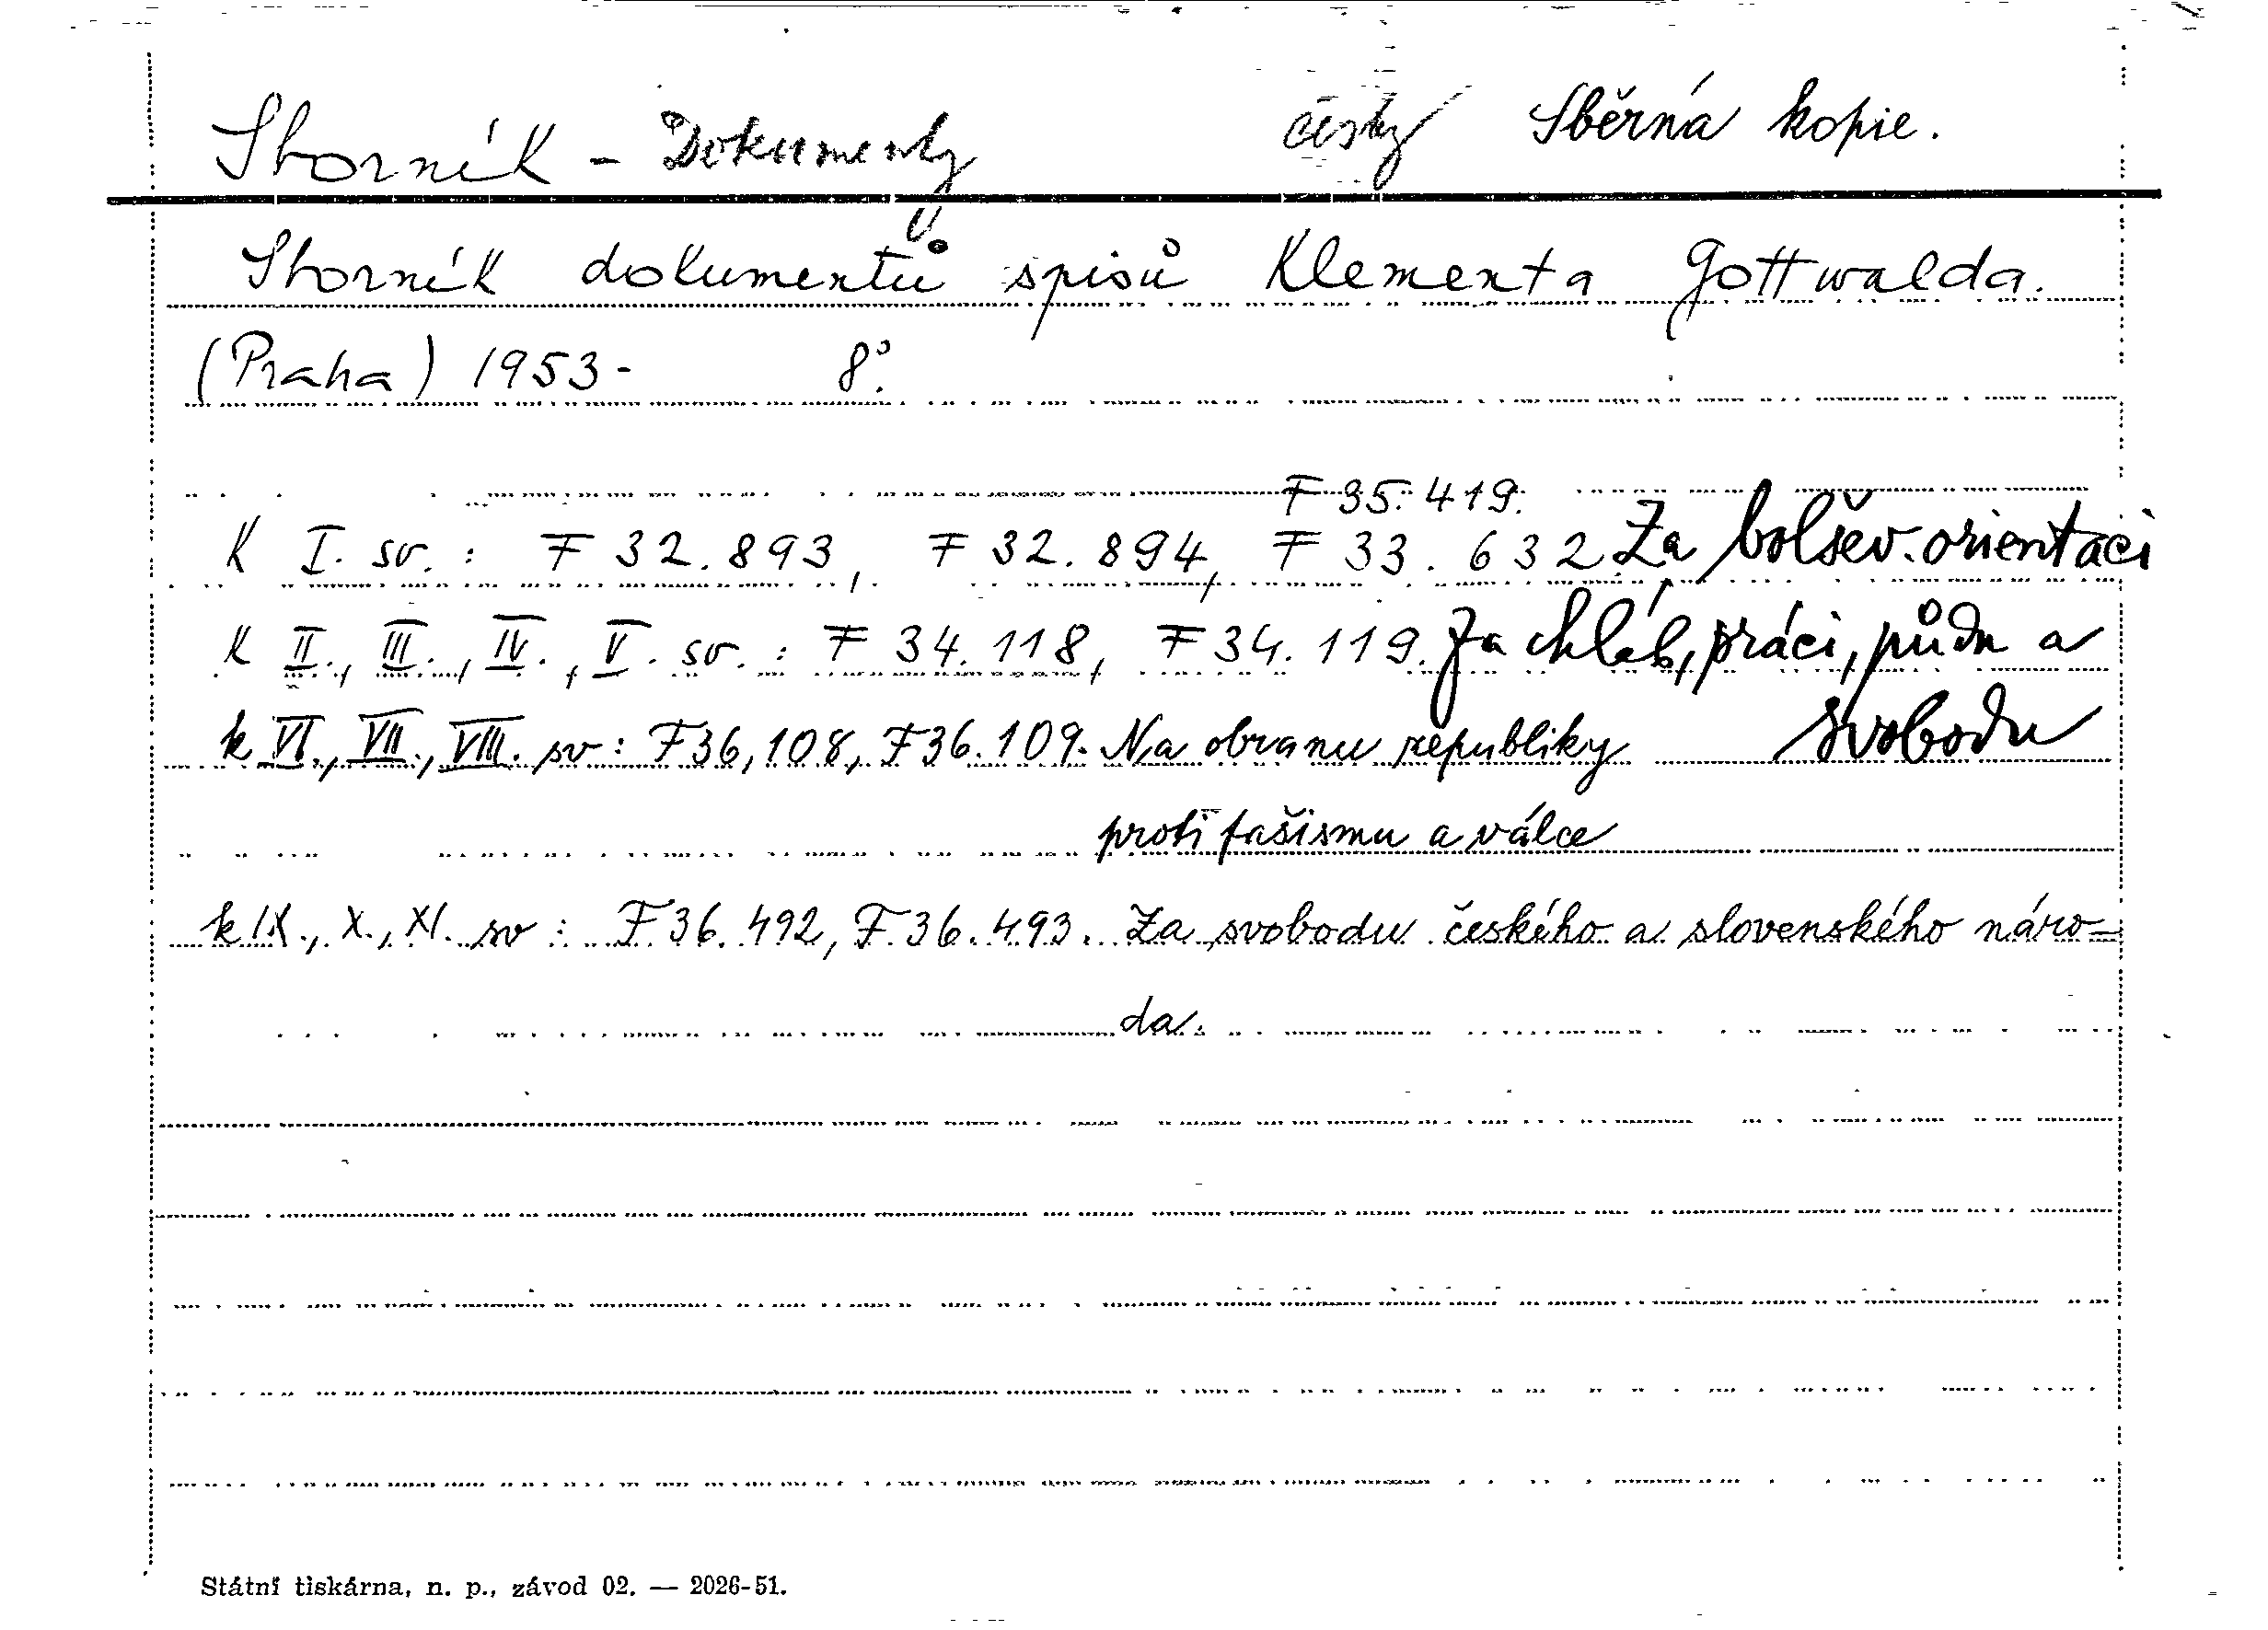 Sborník - Dokumenty česky Sběrná kopie.
Sborník dokumentů spisů Klementa Gottwalda.
(Praha) 1953- 8°.
F 35.419.
K I. sv.: F 32.893, F 32.894, F 33.632 Za bolšev. orientaci
K II., III., IV., V. sv.: F 34.118, F 34.119. Za chléb, práci, půdu a
svobodu
k VI., VII., VIII. sv: F36,108, F36.109. Na obranu republiky
proti fašismu a válce
k IX., X., XI. sv: F 36.492, F 36.493. Za svobodu českého a slovenského náro=
da.
Státní tiskárna, n. p., závod 02. — 2026-51.